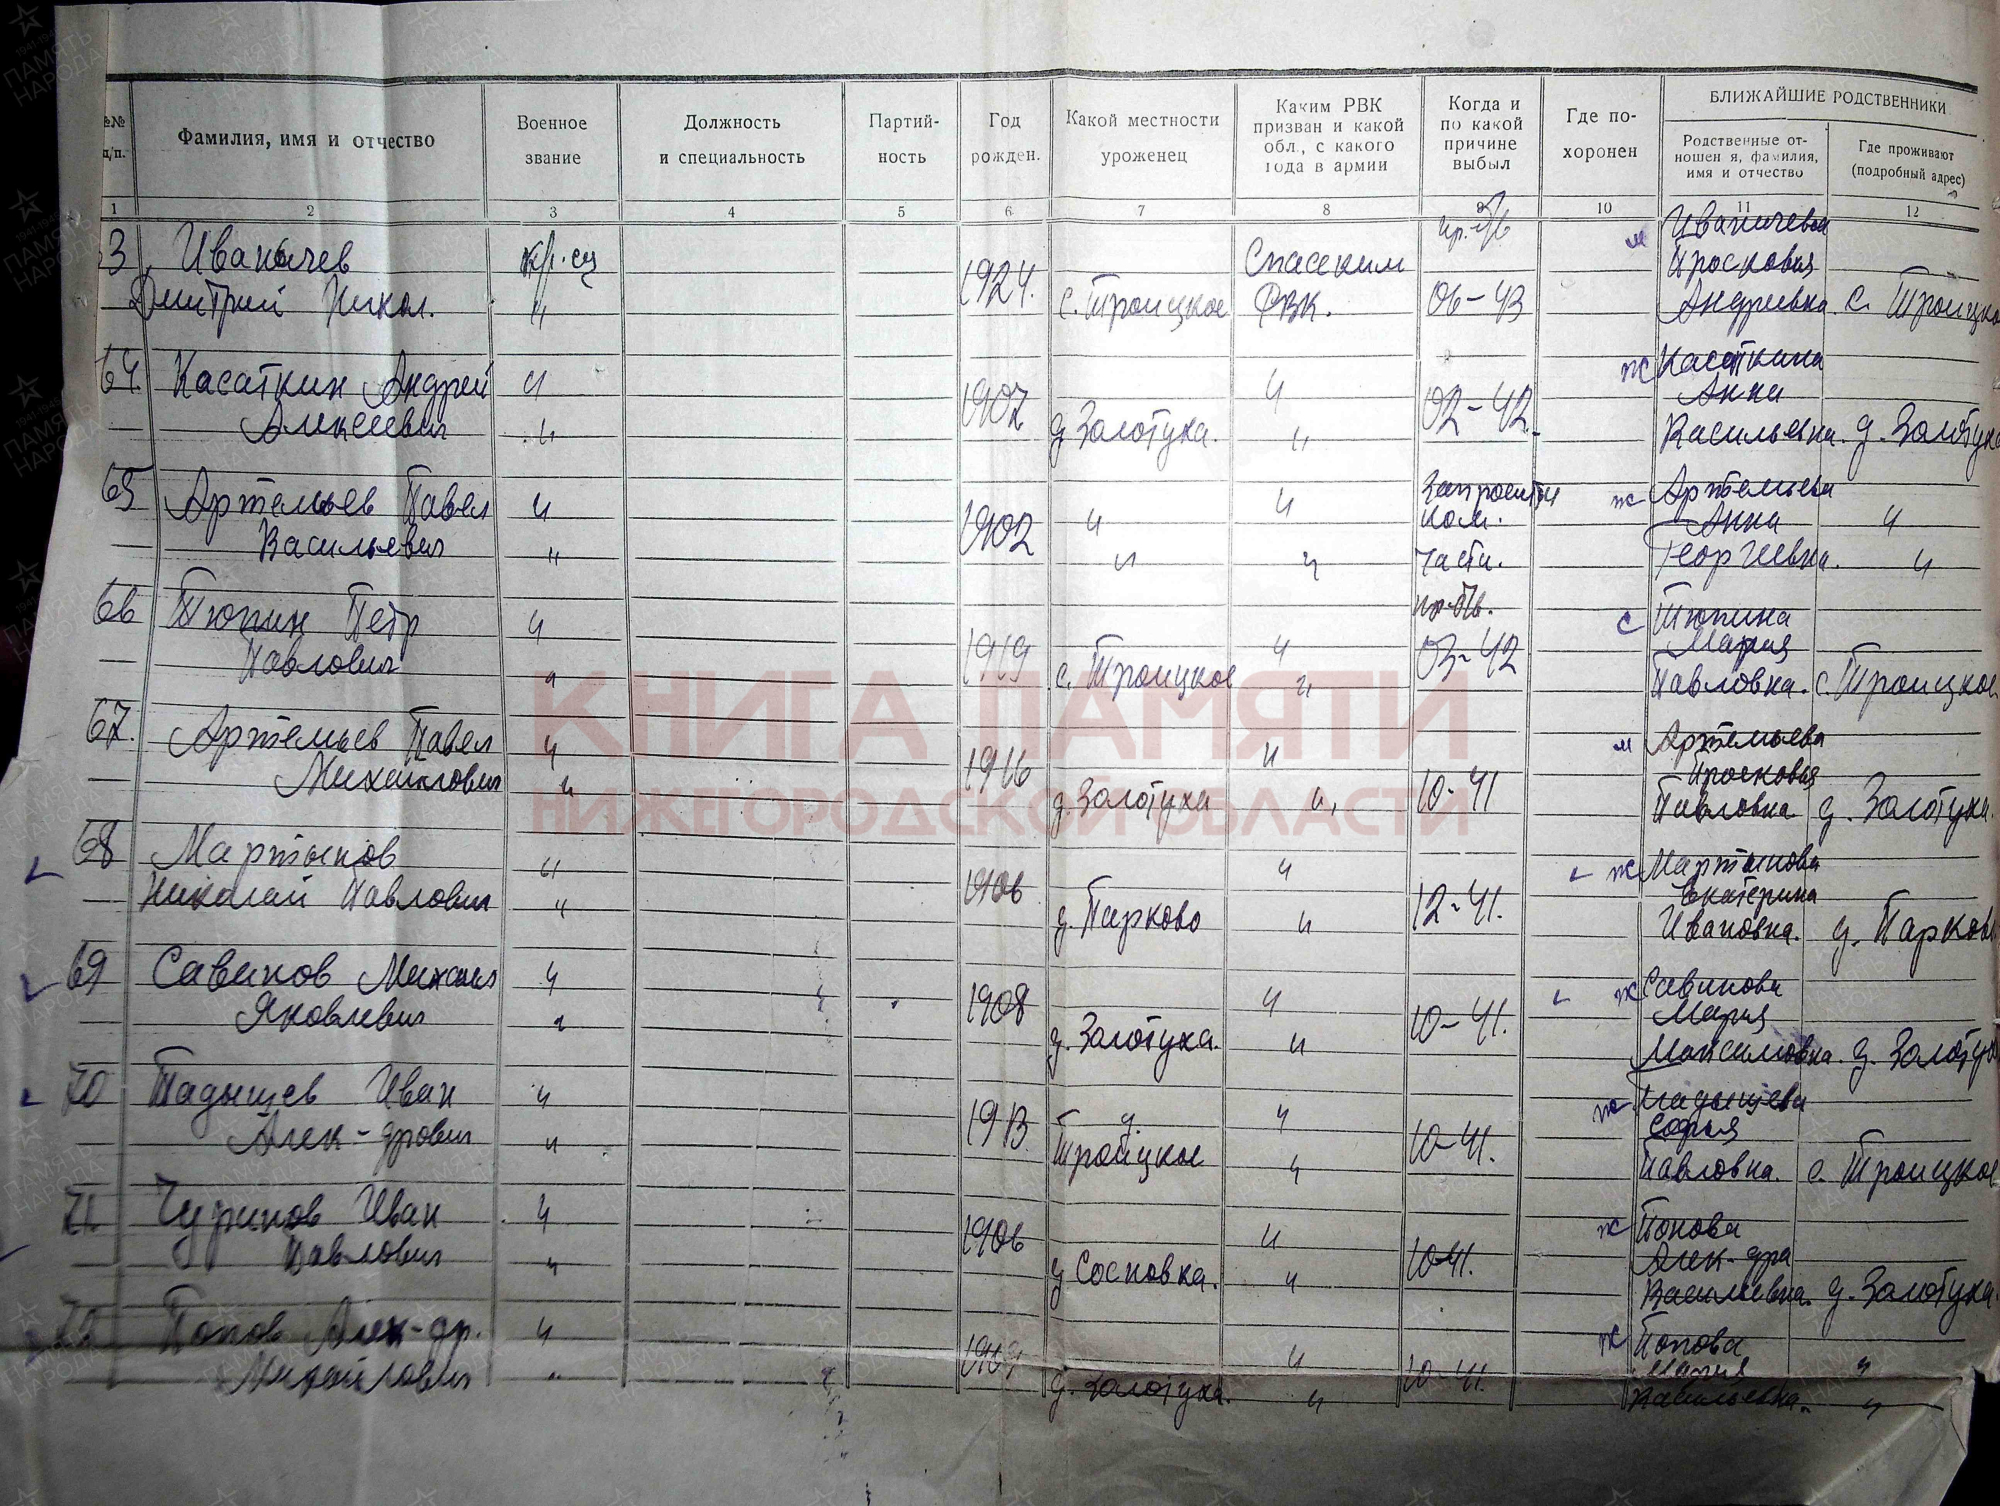 №№ п/п.
Фамилия, имя и отчество
Военное звание
Должность и специальность
Партий-ность
Год рожден.
Какой местности уроженец
Каким РВК призван и какой обл., с какого года в армии
Когда и по какой причине выбыл
Где по-хоронен
БЛИЖАЙШИЕ РОДСТВЕННИКИ
Родственные от-ношен я, фамилия, имя и отчество
Где проживают (подробный адрес)
1 2 3 4 5 6 7 8 9 10 11 12
3 Иваничев кр-ец 1924. Спасским пр. б/в м Иваничева Просковья
Дмитрий Никол. " с. Троицкое РВК. 06-43 Андреевна с. Троицко
64. Касаткин Андрей " 1907 " 02-42. ж Касаткина Анна
Алексеевич " д. Золотуха. " Васильевна. д. Золотуха
65 Артемьев Павел " 1902 " " Запросить ком. ж Артемьева Анна "
Васильевич " " " части. Георгиевна. "
66 Тюпин Петр " 1919 " пр. б/в. 03-42 с Тюпина Мария
Павлович " с. Троицкое " Павловна. с. Троицкое
67. Артемьев Павел " 1916 " 10-41 м Артемьева Просковья
Михаилович " д. Золотуха " Павловна д. Золотуха.
68 Мартынов " 1906 " 12-41. ж Мартынова Екатерина
Николай Павлович " д. Парково " Ивановна. д. Парков
69 Савинов Михаил " 1908 " 10-41. ж Савинова Мария
Яковлевич " д. Золотуха. " Максимовна. д. Золотух
70 Тадыщев Иван " 1913 д. " 10-41. ж Тадыщева София
Алек-дрович " Троицкое " Павловна. с. Троицкое
71. Чуринов Иван " 1906 " 10-41. ж Попова Алек-дра
Павлович " д Сосновка. " Васильевна. д. Золотуха.
72 Попов Алек-др. " " 10-41. ж Попова Мария "
Михайлович " д. Золотуха. " Васильевна. "
КНИГА ПАМЯТИ
НИЖЕГОРОДСКОЙ ОБЛАСТИ
1941-1945
ПАМЯТЬ НАРОДА